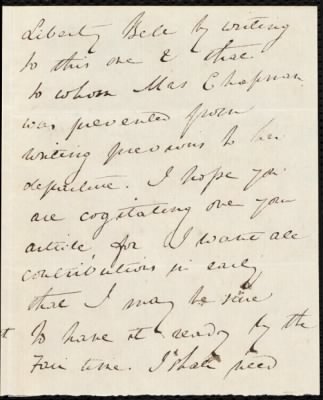 Liberty Bell by writing
to this one & that
to whom Mrs Chapman
was prevented from
writing previous to her
departure. I hope you
are cogitating over your
article, for I want all
contributions in early
that I may be sure
to have it ready by the
Fair time. I shall need